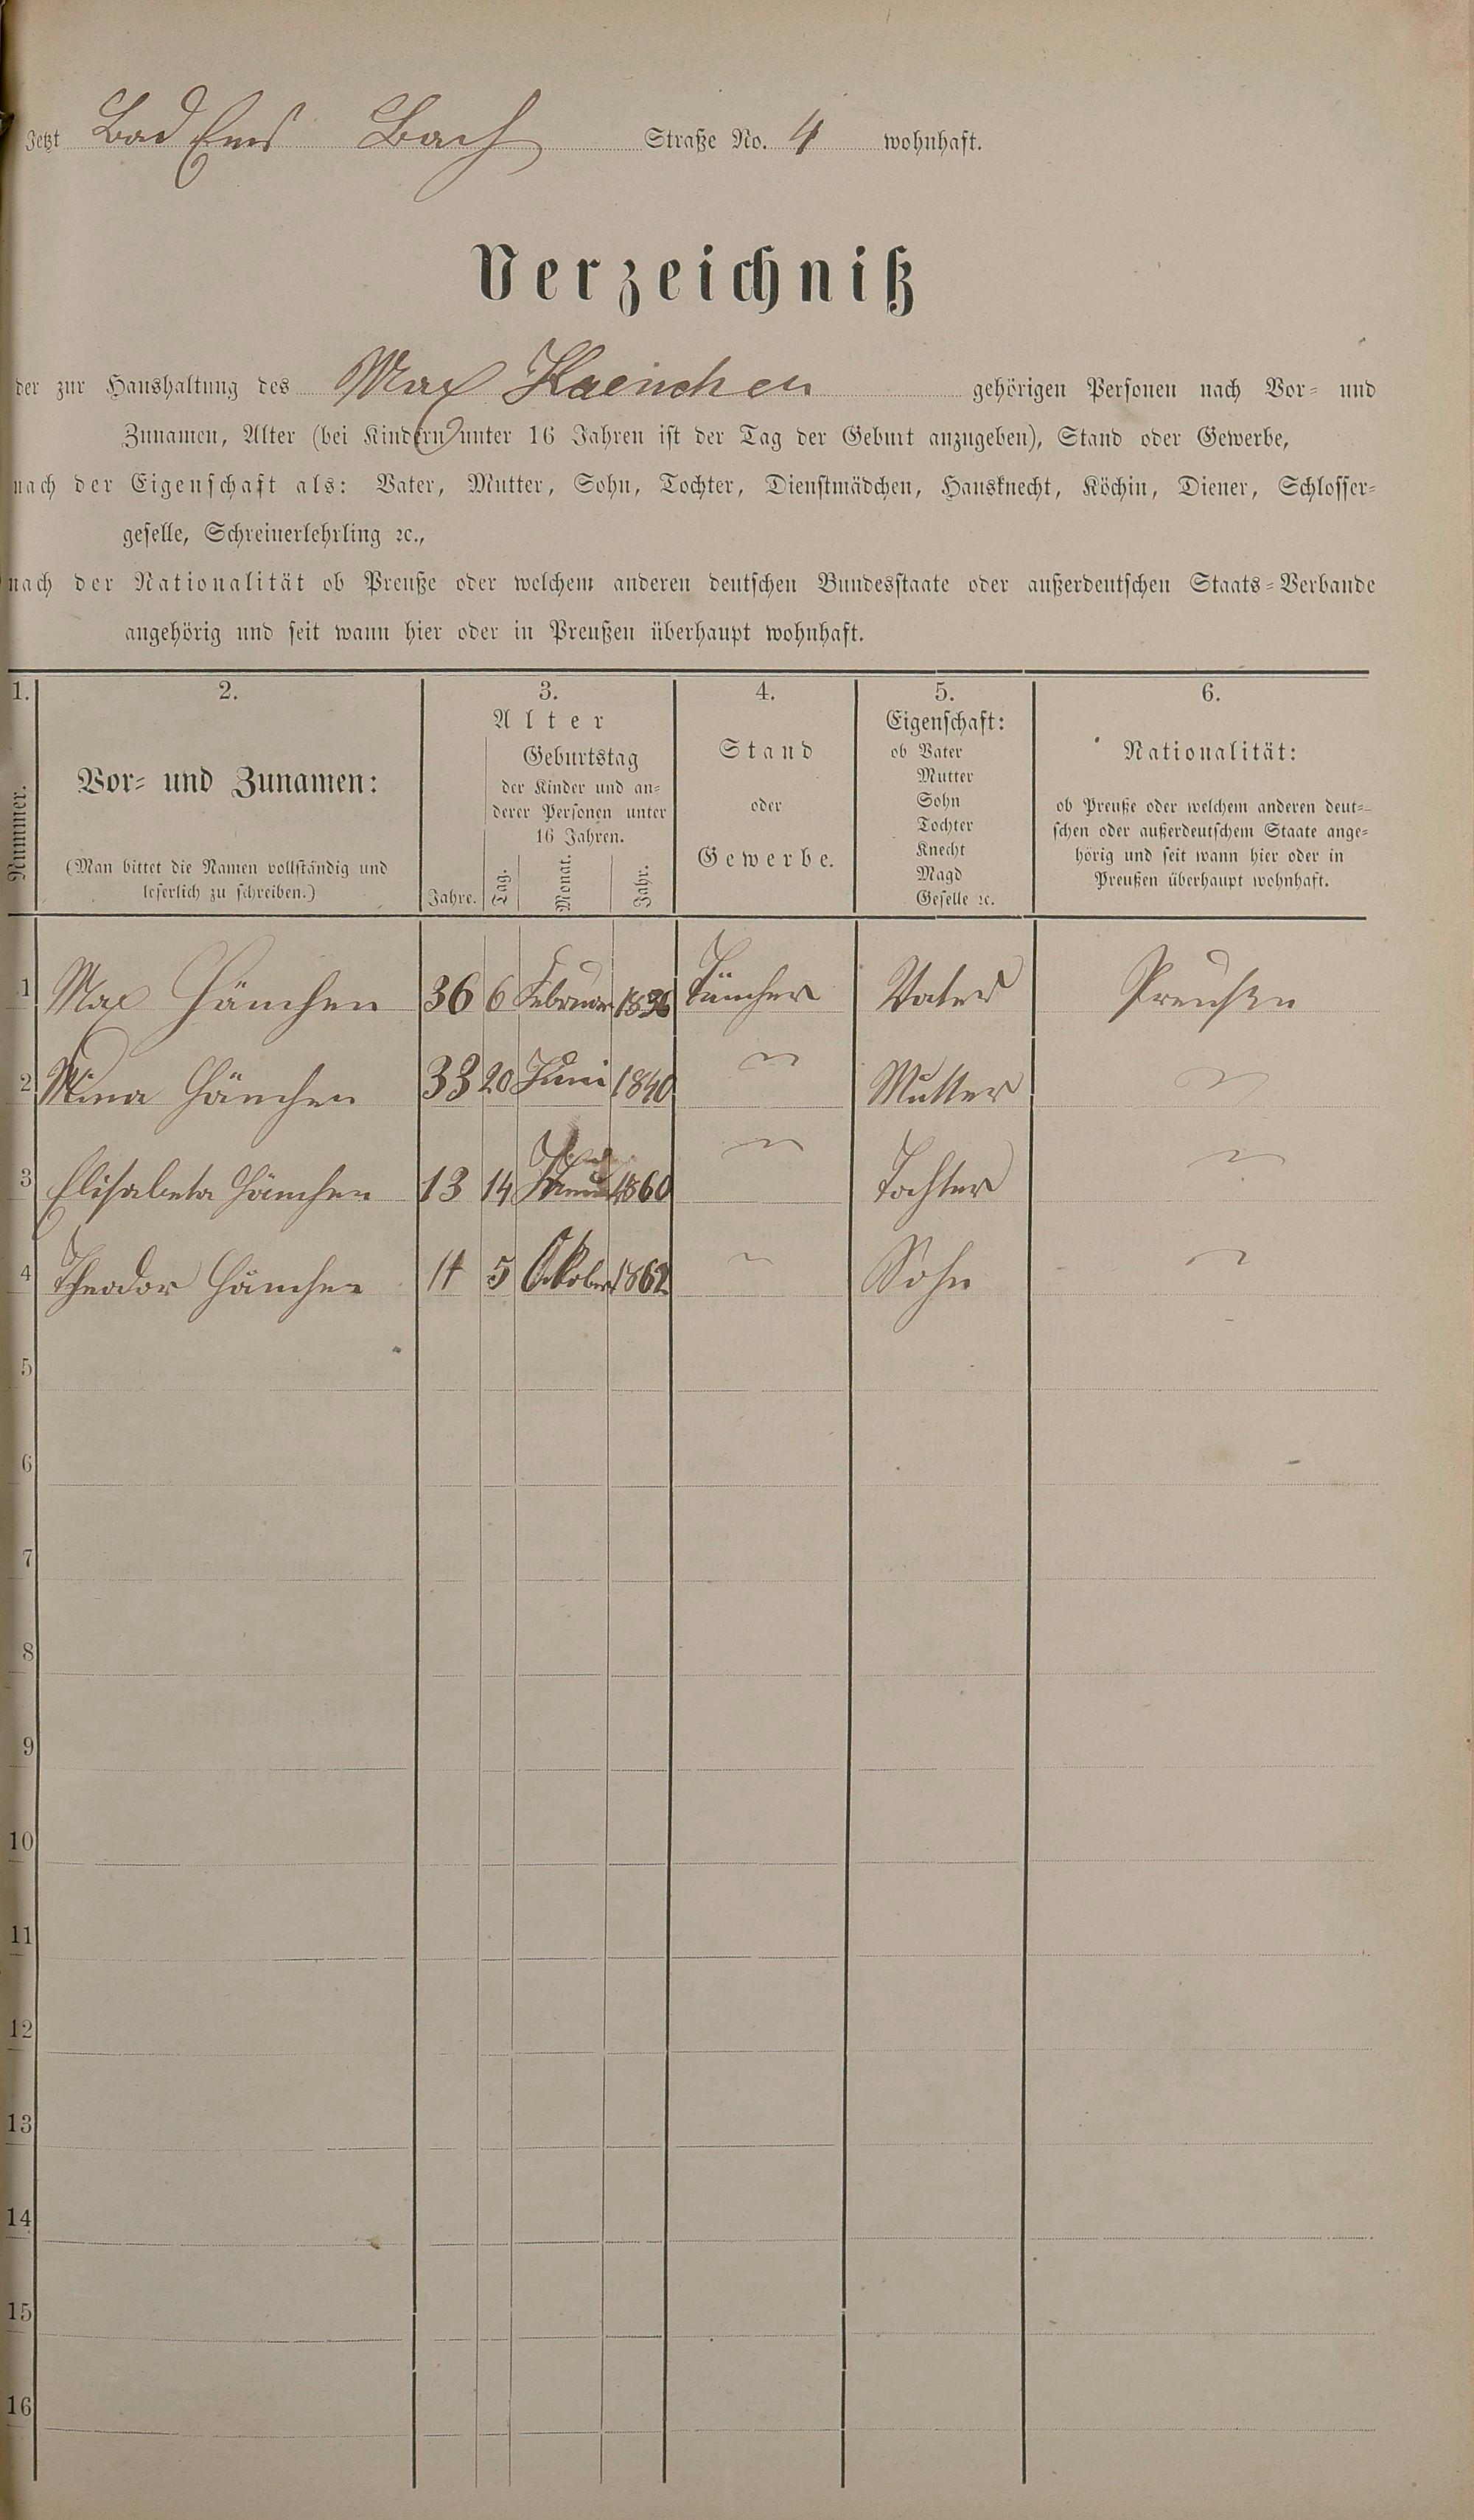 Jetzt Bad Ems Bach Straße No. 4 wohnhaft.
Verzeichniß
der zur Haushaltung des Max Haenchen gehörigen Personen nach Vor- und
Zunamen, Alter (bei Kindern unter 16 Jahren ist der Tag der Geburt anzugeben), Stand oder Gewerbe,
nach der Eigenschaft als: Vater, Mutter, Sohn, Tochter, Dienstmädchen, Hausknecht, Köchin, Diener, Schlosser-
geselle, Schreinerlehrling ꝛc.,
nach der Nationalität ob Preuße oder welchem anderen deutschen Bundesstaate oder außerdeutschen Staats-Verbande
angehörig und seit wann hier oder in Preußen überhaupt wohnhaft.
1. 2. 3. 4. 5. 6.
Nummer.
Vor- und Zunamen:
(Man bittet die Namen vollständig und
leserlich zu schreiben.)
Alter
Geburtstag
der Kinder und an-
derer Personen unter
16 Jahren.
Jahre. Tag. Monat. Jahr.
Stand
oder
Gewerbe.
Eigenschaft:
ob Vater
Mutter
Sohn
Tochter
Knecht
Magd
Geselle ꝛc.
Nationalität:
ob Preuße oder welchem anderen deut-
schen oder außerdeutschem Staate ange-
hörig und seit wann hier oder in
Preußen überhaupt wohnhaft.
1 Max Hänchen 36 6 Februar 1836 Tüncher Vater Preußen
2 Mina Hänchen 33 20 Juni 1840 Mutter
3 Elisabeta Hänchen 13 14 1860 Tochter
4 Theodor Hänchen 11 5 Oktober 1862 Sohn
5
6
7
8
9
10
11
12
13
14
15
16